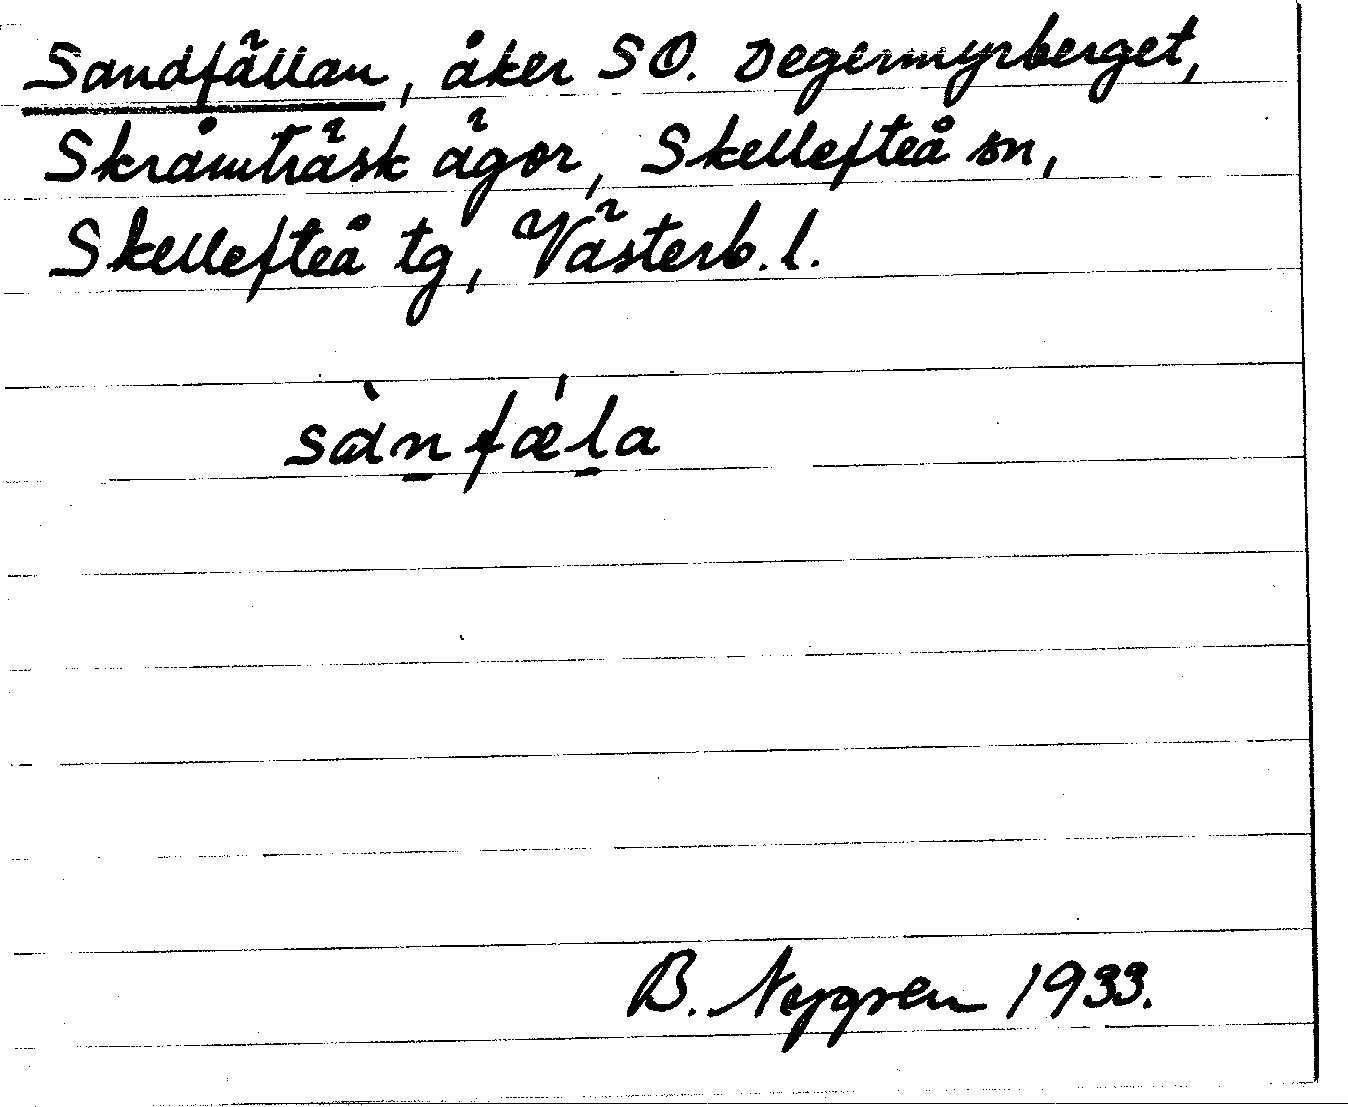 Sandfällan, åker SO. Degermyrberget,
Skråmträsk ägor, Skellefteå sn,
Skellefteå tg, Västerb. l.
sàn̲fǽl̲a
B. Nygren 1933.